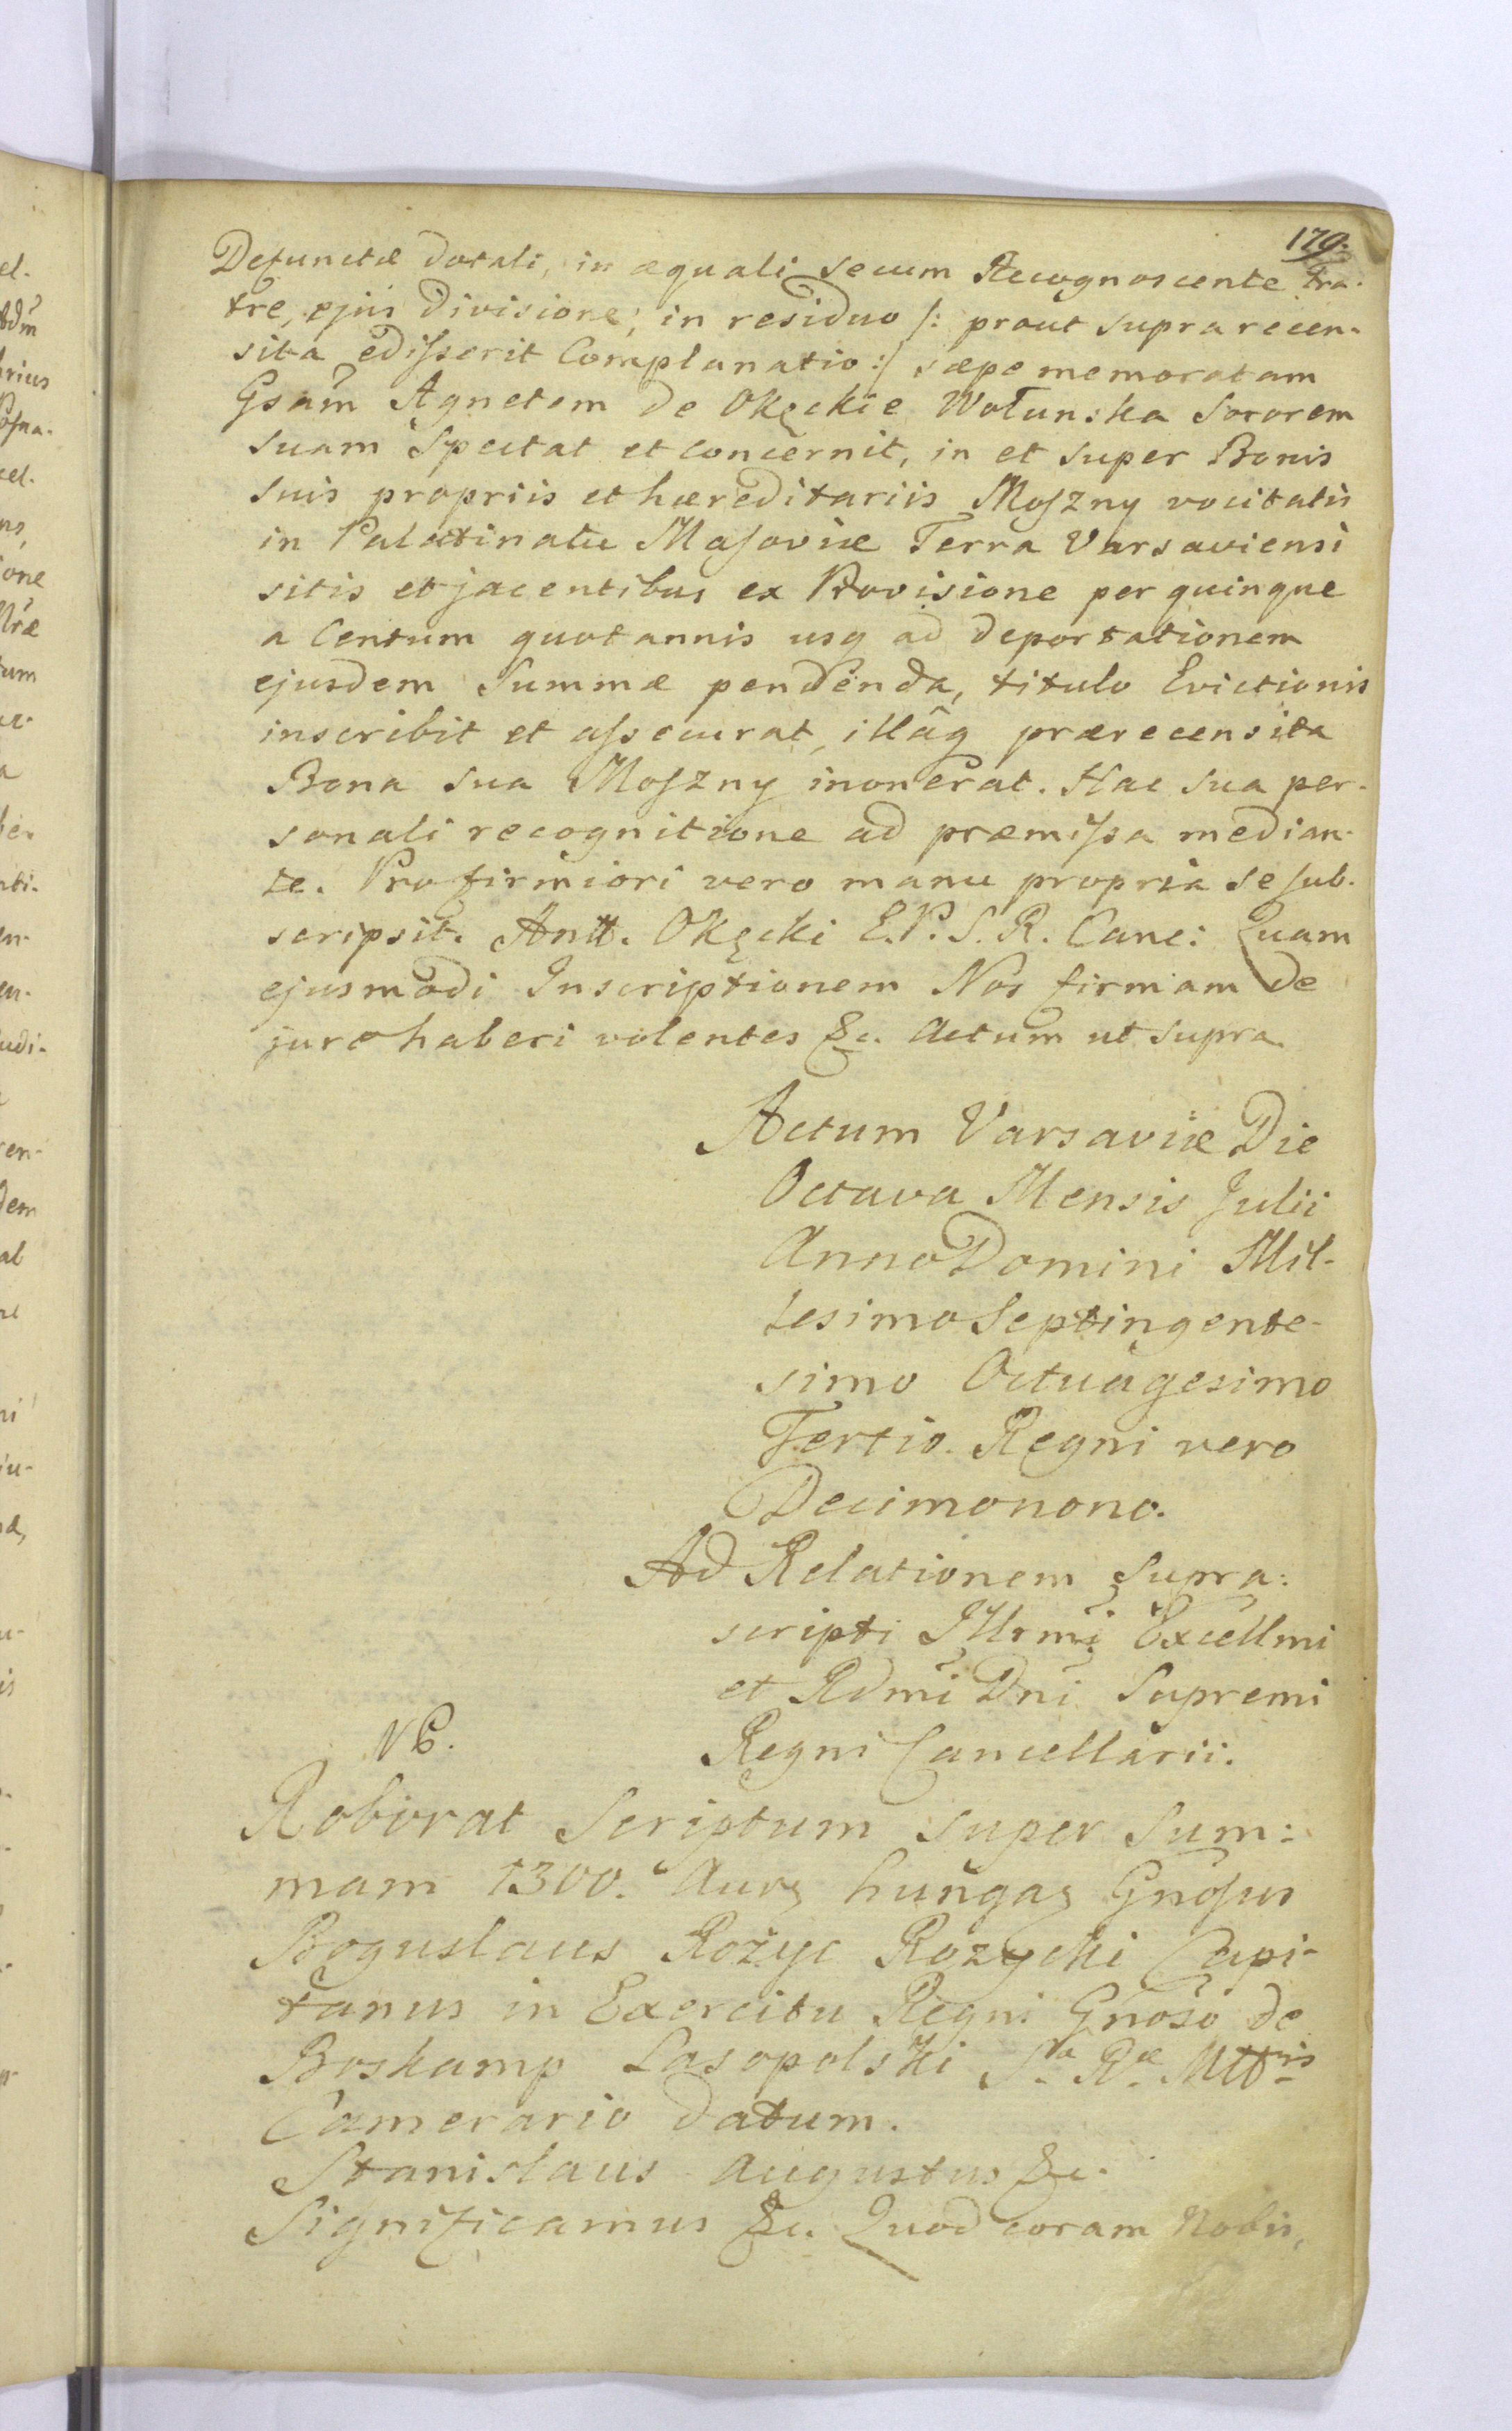 179.
Defunctæ dotali, in æquali secum Recognoscente fra-
tre, ejus Divisione; in residuo /: prout supra recen-
sita edisserit Complanatio :/ sæpe memoratam
Gsam Agnetem de Okęckie Wołunska Sororem
suam Spectat et concernit, in et super Bonis
suis propriis et hæreditariis Moszny vocitatis
in Palatinatu Masoviæ Terra Varsaviensi
sitis et jacentibus ex Provisione per quinque
a Centum quotannis usq ad deportationem
ejusdem Summæ pendenda, titulo Evictionis
inscribit et assecurat, illâq prærecensita
Bona sua Moszny inonerat. Hac sua per-
sonali recognitione ad præmissa median-
te. Pro firmiori vero manu propria se sub-
scripsit. Antt. Okęcki E. P. S. R. Canc: Quam
ejusmodi Inscriptionem Nos firmam de
jure haberi volentes &c. Actum ut supra.
Actum Varsaviæ Die
Octava Mensis Julii
Anno Domini Mil-
lesimo Septingente-
simo Octuagesimo
Tertio. Regni vero
Decimonono.
Ad Relationem supra:
scripti Illrmi Excellmi
et Rdmi Dni Supremi
Regni Cancellarii.
NB.
Roborat Scriptum super Sum:
mam 1300. Aurs hungas Gnosus
Boguslaus Rożyc Rozycki Capi-
tanus in Exercitu Regni Gnoso de
Boskamp Lasopolski S. Ræ Mttis
Camerario datum.
Stanislaus Augustus &c.
Significamus &c. Quod coram Nobis,